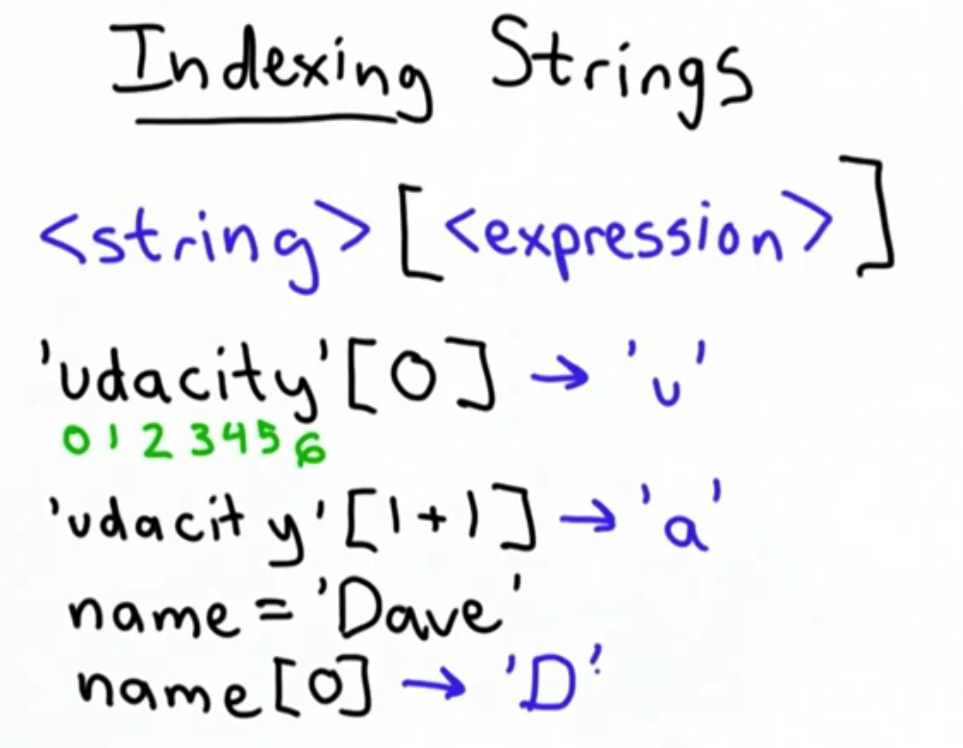 Indexing Strings
<string>[<expression>]
'udacity'[0] → 'u'
0 1 2 3 4 5 6
'udacity'[1+1] → 'a'
name = 'Dave'
name[0] → 'D'